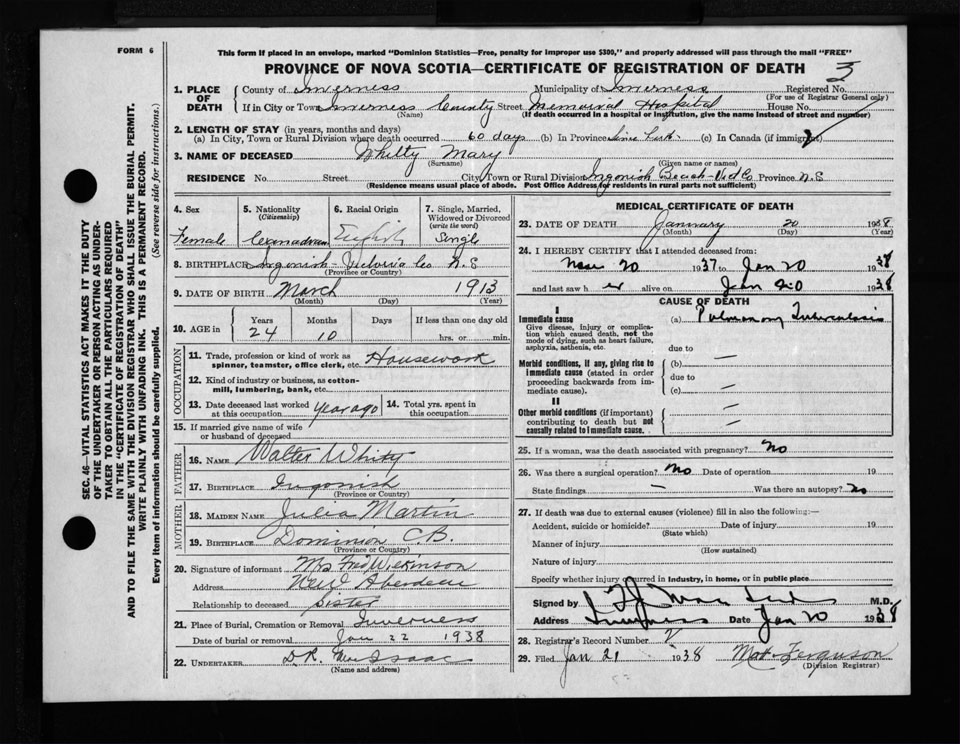 FORM 6
This form if placed in an envelope, marked "Dominion Statistics—Free, penalty for improper use $300," and properly addressed will pass through the mail "FREE"
PROVINCE OF NOVA SCOTIA—CERTIFICATE OF REGISTRATION OF DEATH
3
1. PLACE OF DEATH County of Inverness Municipality of Inverness Registered No.
(For use of Registrar General only)
If in City or Town Inverness County Street Memorial Hospital House No.
(Name) (If death occurred in a hospital or institution, give the name instead of street and number)
2. LENGTH OF STAY (in years, months and days)
(a) In City, Town or Rural Division where death occurred 60 days (b) In Province (c) In Canada (if immigrant)
3. NAME OF DECEASED Whitty Mary
(Surname) (Given name or names)
RESIDENCE No. Street City, Town or Rural Division Ingonish Beach Province N.S
(Residence means usual place of abode. Post Office Address for residents in rural parts not sufficient)
4. Sex
Female
5. Nationality
(Citizenship)
Canadian
6. Racial Origin
English
7. Single, Married, Widowed or Divorced
(write the word)
Single
8. BIRTHPLACE Ingonish - Victoria Co N.S
(Province or Country)
9. DATE OF BIRTH March 1913
(Month) (Day) (Year)
10. AGE in Years Months Days If less than one day old
24 10 hrs. or min.
OCCUPATION
11. Trade, profession or kind of work as spinner, teamster, office clerk, etc. Housework
12. Kind of industry or business, as cotton-mill, lumbering, bank, etc.
13. Date deceased last worked at this occupation year ago
14. Total yrs. spent in this occupation
15. If married give name of wife or husband of deceased
FATHER
16. Name Walter Whitty
17. BIRTHPLACE Ingonish
(Province or Country)
MOTHER
18. MAIDEN NAME Julia Martin
19. BIRTHPLACE Dominion C.B.
(Province or Country)
20. Signature of informant Mrs Fred Wilkinson
Address New Aberdeen
Relationship to deceased Sister
21. Place of Burial, Cremation or Removal Inverness
Date of burial or removal Jan 22 1938
22. UNDERTAKER D.R. MacIsaac
(Name and address)
MEDICAL CERTIFICATE OF DEATH
23. DATE OF DEATH January 20 1938
(Month) (Day) (Year)
24. I HEREBY CERTIFY that I attended deceased from:
Nov 20 1937 to Jan 20 1938
and last saw her alive on Jan 20 1938
CAUSE OF DEATH
I
Immediate cause (a) Pulmonary Tuberculosis
Give disease, injury or complication which caused death, not the mode of dying, such as heart failure, asphyxia, asthenia, etc.
due to —
Morbid conditions, if any, giving rise to immediate cause (stated in order proceeding backwards from immediate cause).
(b)
due to
(c) —
II
Other morbid conditions (if important) contributing to death but not causally related to immediate cause.
—
—
25. If a woman, was the death associated with pregnancy? No
26. Was there a surgical operation? No Date of operation 19
State findings — Was there an autopsy? No
27. If death was due to external causes (violence) fill in also the following:—
Accident, suicide or homicide? Date of injury 19
(State which)
Manner of injury
(How sustained)
Nature of injury
Specify whether injury occurred in industry, in home, or in public place
Signed by M.D.
Address Inverness Date Jan 20 1938
28. Registrar's Record Number
29. Filed Jan 21 1938 Ferguson
(Division Registrar)
SEC. 46—VITAL STATISTICS ACT MAKES IT THE DUTY
OF THE UNDERTAKER OR PERSON ACTING AS UNDER-
TAKER TO OBTAIN ALL THE PARTICULARS REQUIRED
IN THE "CERTIFICATE OF REGISTRATION OF DEATH"
AND TO FILE THE SAME WITH THE DIVISION REGISTRAR WHO SHALL ISSUE THE BURIAL PERMIT.
WRITE PLAINLY WITH UNFADING INK. THIS IS A PERMANENT RECORD.
Every item of information should be carefully supplied. (See reverse side for instructions.)